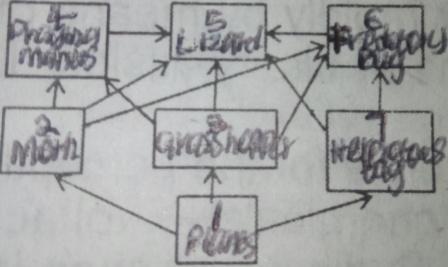 4
Praying
mantis
5
Lizard
6
Predatory
Bug
2
Moth
3
Grasshopper
7
Herbivorous
bug
1
Plants